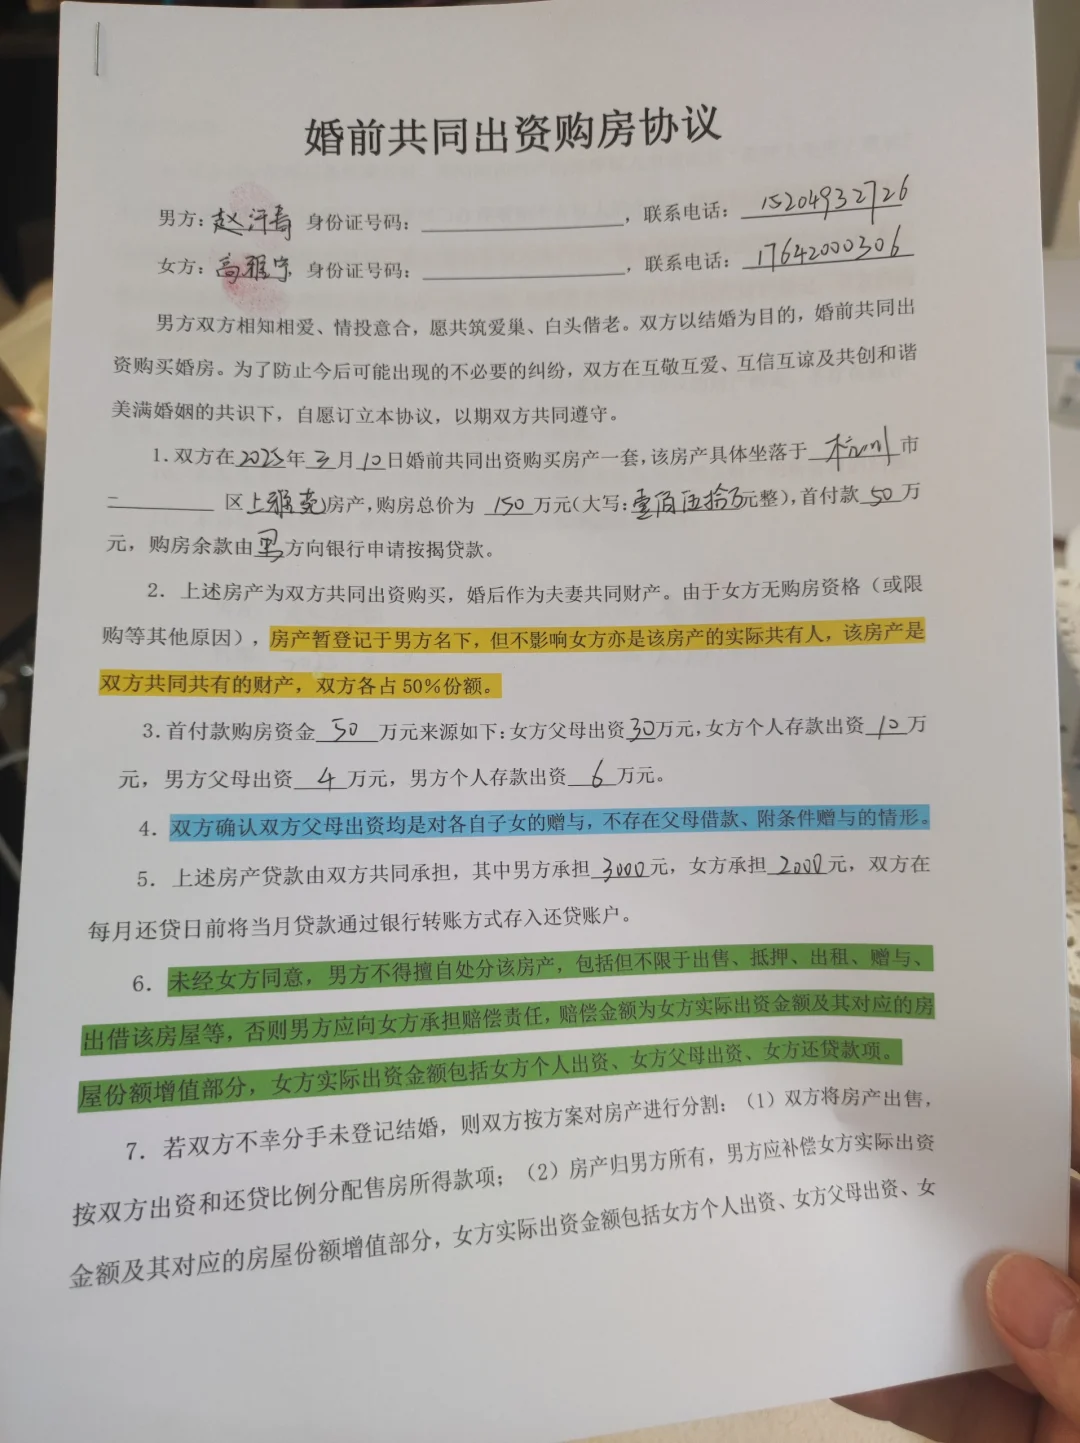 婚前共同出资购房协议
男方：赵汗青 身份证号码：____________，联系电话：15204932726
女方：高雅宁 身份证号码：____________，联系电话：17642000306
男方双方相知相爱、情投意合，愿共筑爱巢、白头偕老。双方以结婚为目的，婚前共同出
资购买婚房。为了防止今后可能出现的不必要的纠纷，双方在互敬互爱、互信互谅及共创和谐
美满婚姻的共识下，自愿订立本协议，以期双方共同遵守。
1.双方在2025年三月10日婚前共同出资购买房产一套，该房产具体坐落于 杭州 市
________ 区上雅苑房产，购房总价为 150 万元（大写：壹佰伍拾万元整），首付款 50 万
元，购房余款由男方向银行申请按揭贷款。
2．上述房产为双方共同出资购买，婚后作为夫妻共同财产。由于女方无购房资格（或限
购等其他原因），房产暂登记于男方名下，但不影响女方亦是该房产的实际共有人，该房产是
双方共同共有的财产，双方各占 50%份额。
3.首付款购房资金 50 万元来源如下：女方父母出资30万元，女方个人存款出资 10 万
元，男方父母出资 4 万元，男方个人存款出资 6 万元。
4．双方确认双方父母出资均是对各自子女的赠与，不存在父母借款、附条件赠与的情形。
5．上述房产贷款由双方共同承担，其中男方承担 3000 元，女方承担 2000 元，双方在
每月还贷日前将当月贷款通过银行转账方式存入还贷账户。
6．未经女方同意，男方不得擅自处分该房产，包括但不限于出售、抵押、出租、赠与、
出借该房屋等，否则男方应向女方承担赔偿责任，赔偿金额为女方实际出资金额及其对应的房
屋份额增值部分，女方实际出资金额包括女方个人出资、女方父母出资、女方还贷款项。
7．若双方不幸分手未登记结婚，则双方按方案对房产进行分割：（1）双方将房产出售，
按双方出资和还贷比例分配售房所得款项；（2）房产归男方所有，男方应补偿女方实际出资
金额及其对应的房屋份额增值部分，女方实际出资金额包括女方个人出资、女方父母出资、女